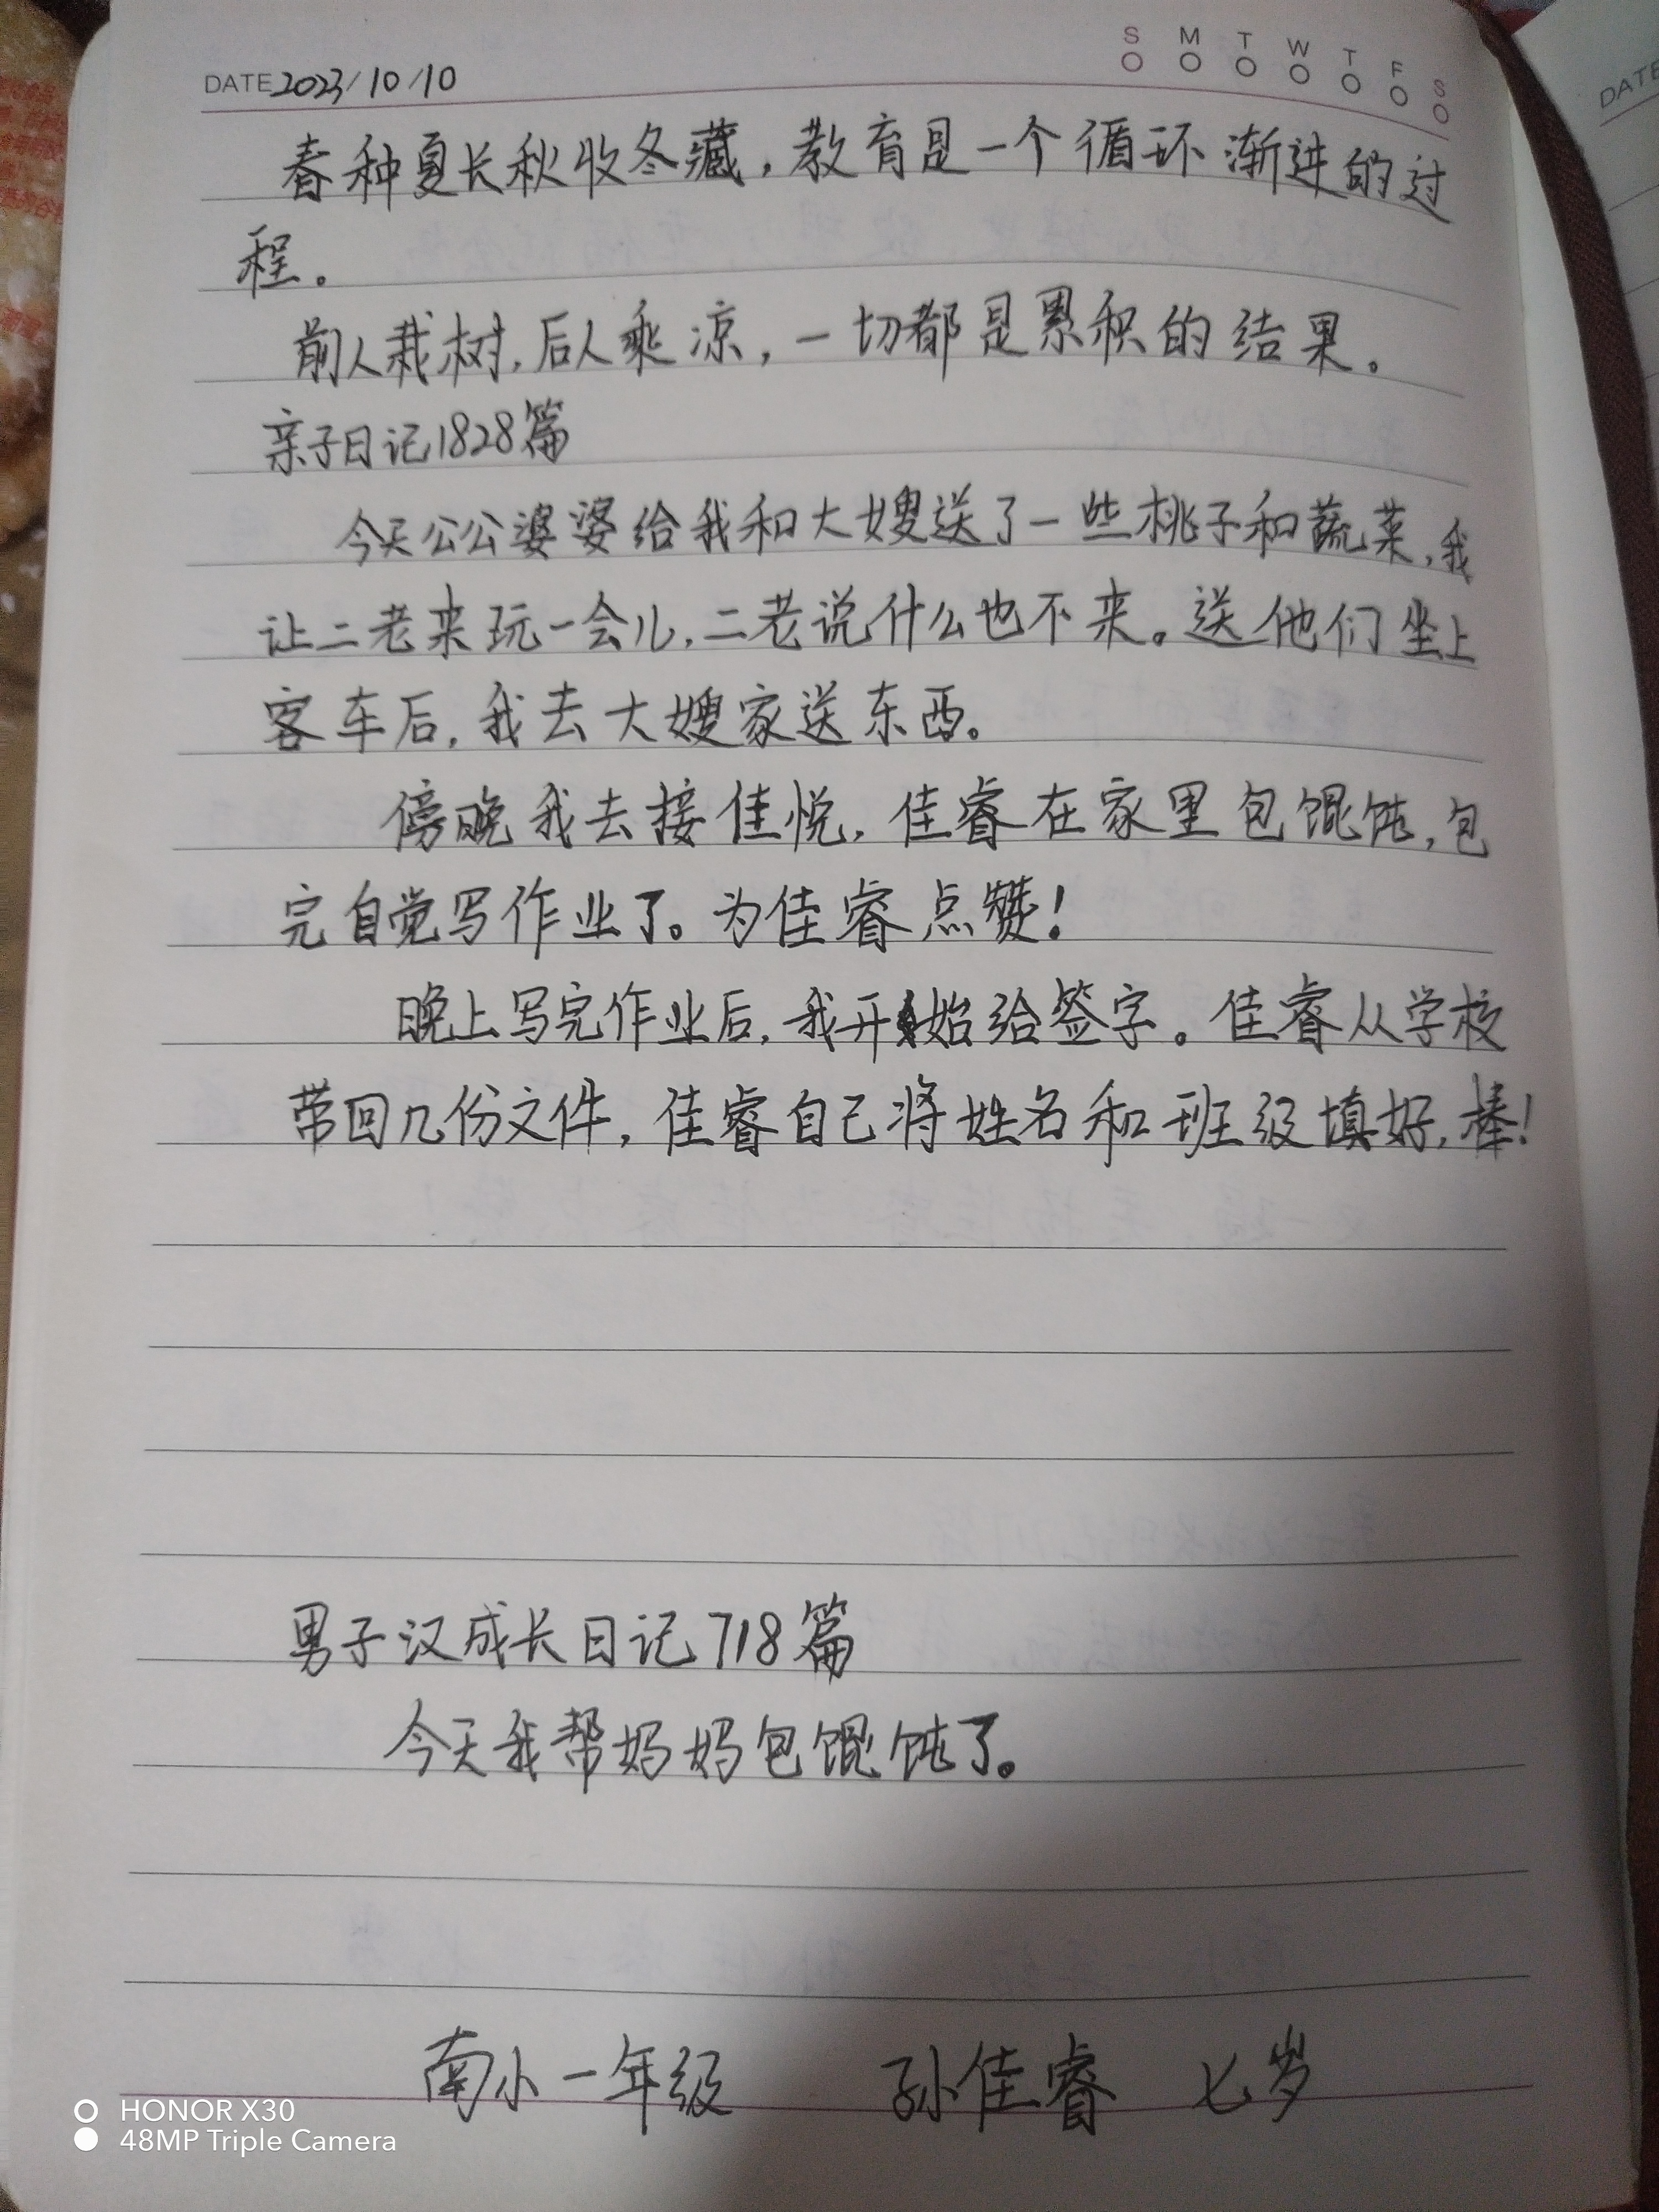 S M T W T F S
DATE 2023/10/10
春种夏长秋收冬藏，教育是一个循环渐进的过
程。
前人栽树，后人乘凉，一切都是累积的结果。
亲子日记1828篇
今天公公婆婆给我和大嫂送了一些桃子和蔬菜，我
让二老来玩一会儿，二老说什么也不来。送他们坐上
客车后，我去大嫂家送东西。
傍晚我去接佳悦，佳睿在家里包馄饨，包
完自觉写作业了。为佳睿点赞！
晚上写完作业后，我开始给签字。佳睿从学校
带回几份文件，佳睿自己将姓名和班级填好，棒！
男子汉成长日记718篇
今天我帮妈妈包馄饨了。
南小一年级 孙佳睿 七岁
HONOR X30
48MP Triple Camera
DATE